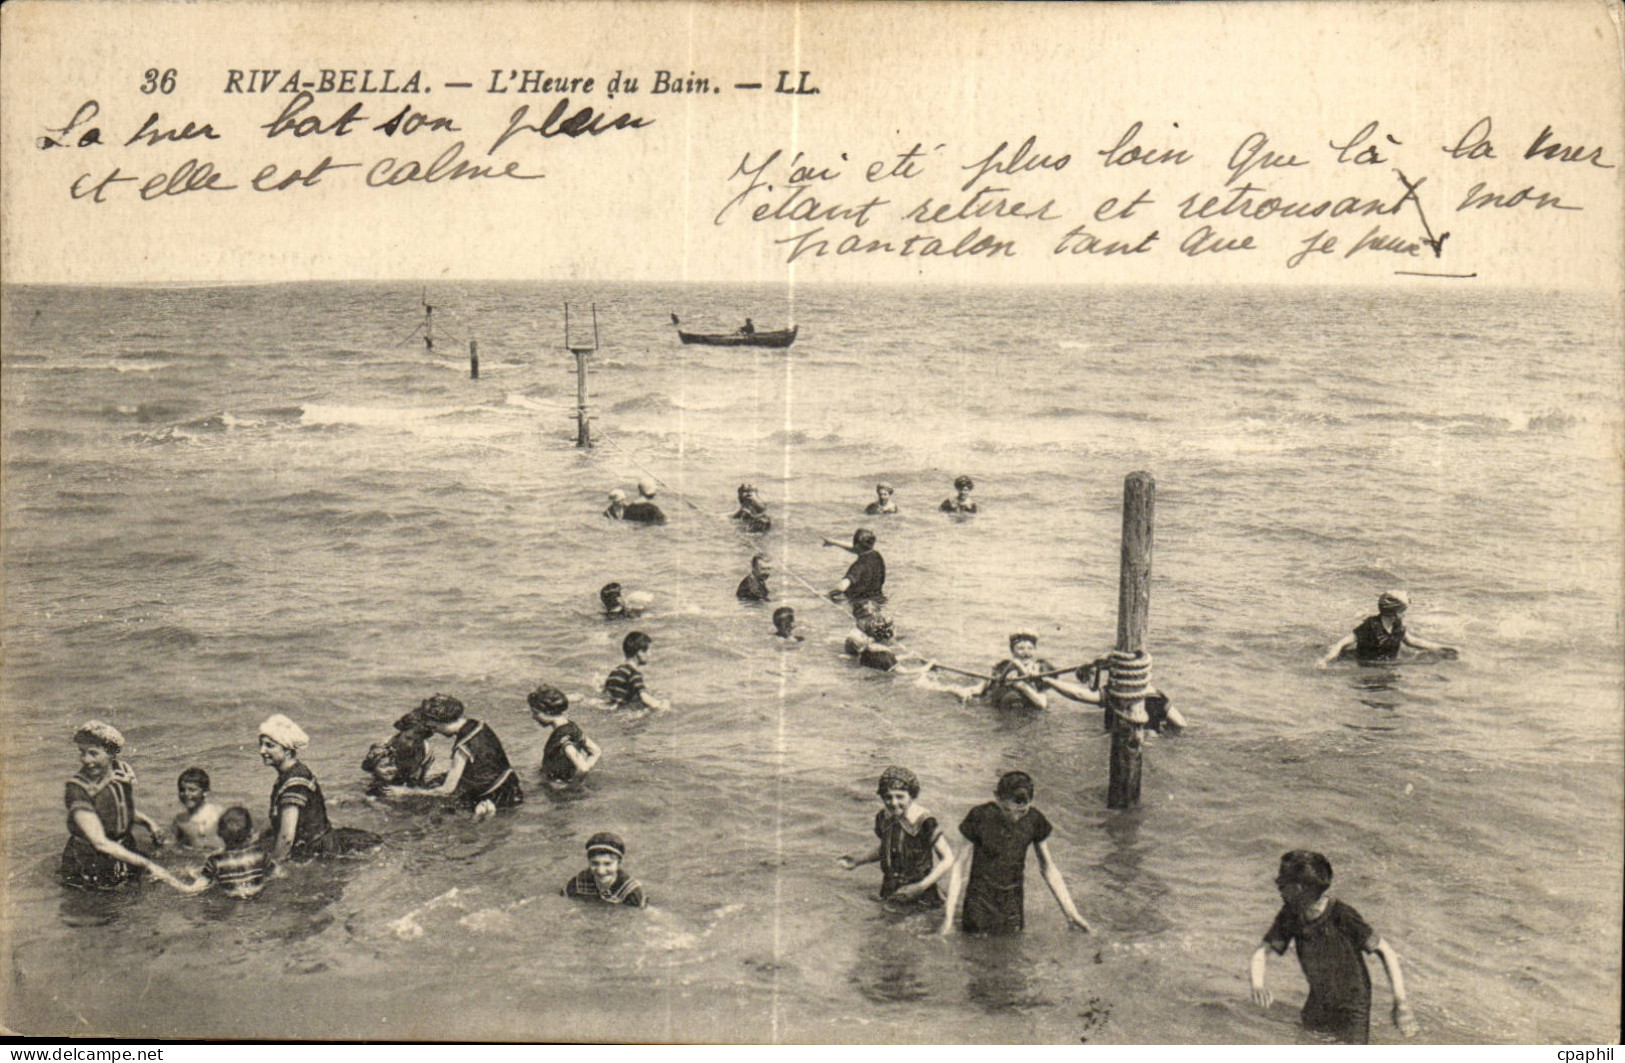 36 RIVA-BELLA. — L'Heure du Bain. — LL.
La mer bat son plein
et elle est calme
J'ai été plus loin que là la mer
étant retirer et retrousant mon
pantalon tant que je peux
delcampe.net
cpaphil